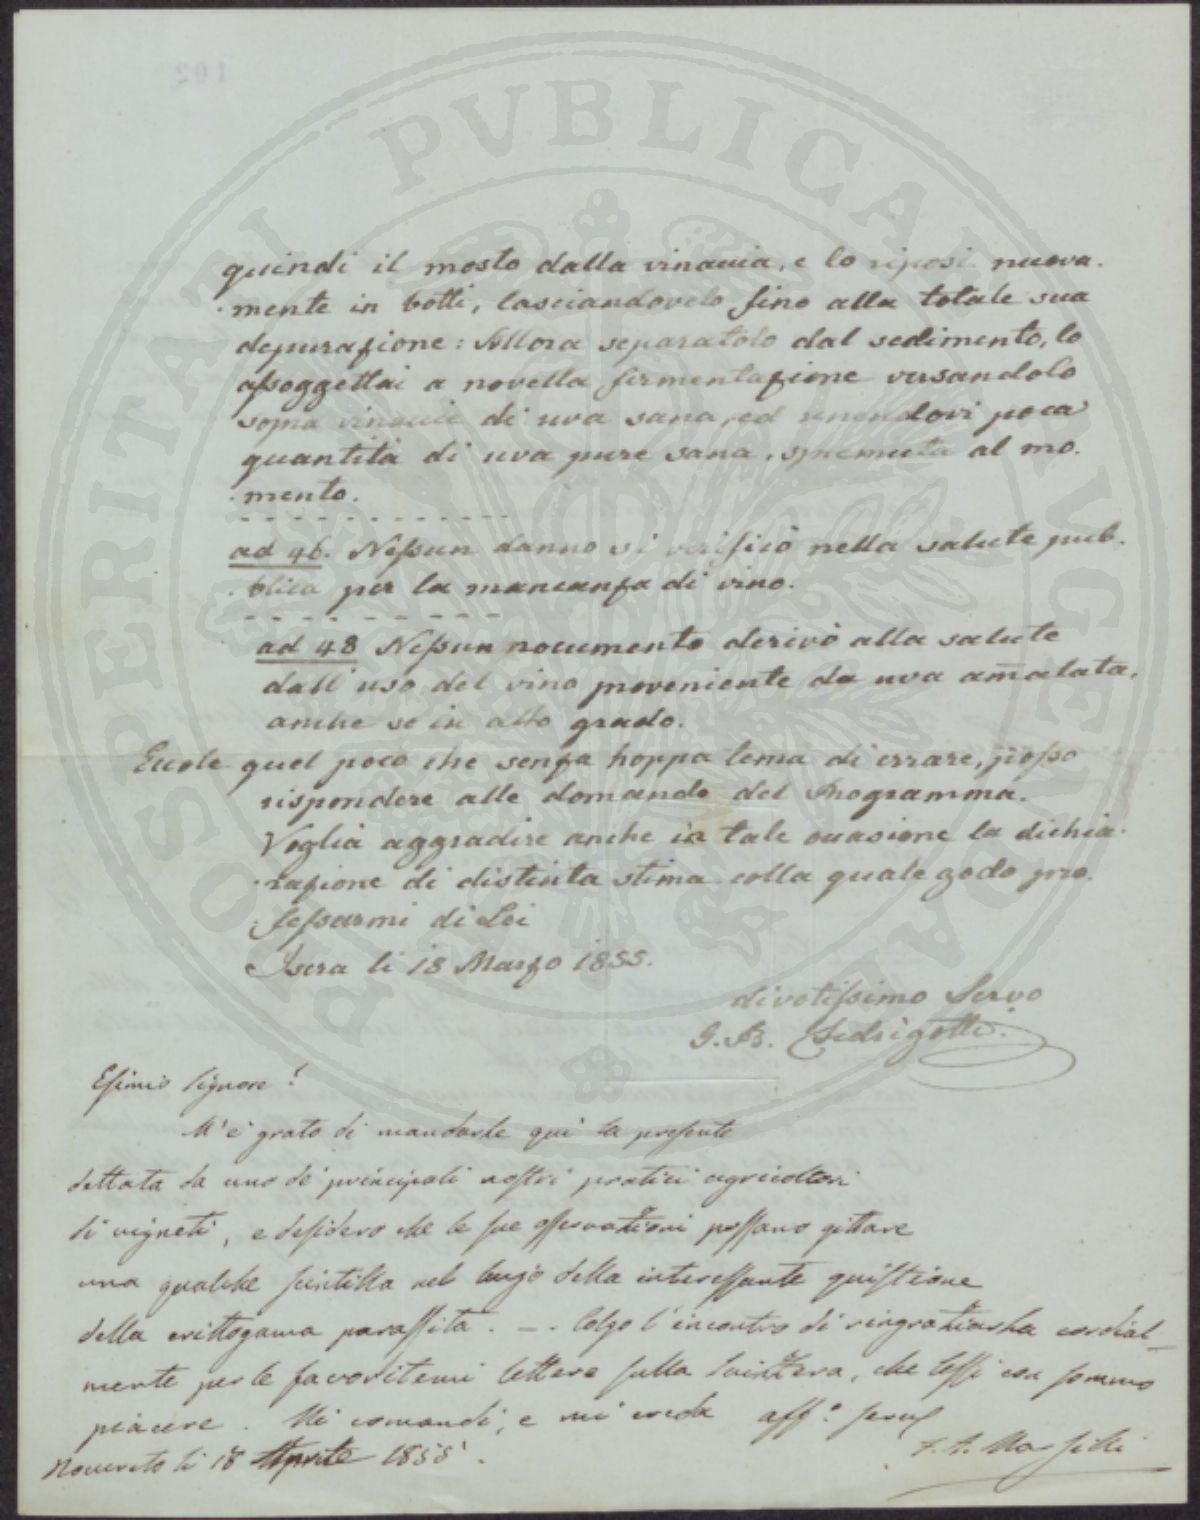 102
PROSPERITATI PVBLICAE AVGENDAE
quindi il mosto dalla vinaccia, e lo riposi nuova-
-mente in botti, lasciandovelo fino alla totale sua
depurazione: Allora separatolo dal sedimento, lo
assoggettai a novella fermentazione versandolo
sopra vinacce di uva sana, ed unendovi poca
quantità di uva pure sana, spremuta al mo-
-mento.
ad 46. Nessun danno si verificò nella salute pub-
-blica per la mancanza di vino.
ad 48 Nessun nocumento derivò alla salute
dall'uso del vino proveniente da uva am̄alata,
anche se in alto grado.
Eccole quel poco che senza troppa tema di errare, posso
rispondere alle domande del Programma.
Voglia aggradire anche in tale occasione la dichia-
-razione di distinta stima colla quale godo pro-
-fessarmi di Lei
Isera li 18 Marzo 1855.
divotissimo Servo
G. B. Fedrigotti.
Esimio Signore!
M'è grato di mandarle qui la presente
dettata da uno de' principali nostri pratici agricoltori
di vigneti, e desidero che le sue osservazioni possano gittare
una qualche scintilla nel bujo della interessante quistione
della crittogama parassita. -. Colgo l'incontro di ringraziarla cordial-
mente per le favoritemi lettere sulla Svizzera, che lessi con sommo
piacere. Mi comandi, e mi creda aff.o
Rovereto li 18 Aprile 1855.
F. A. Marsilli